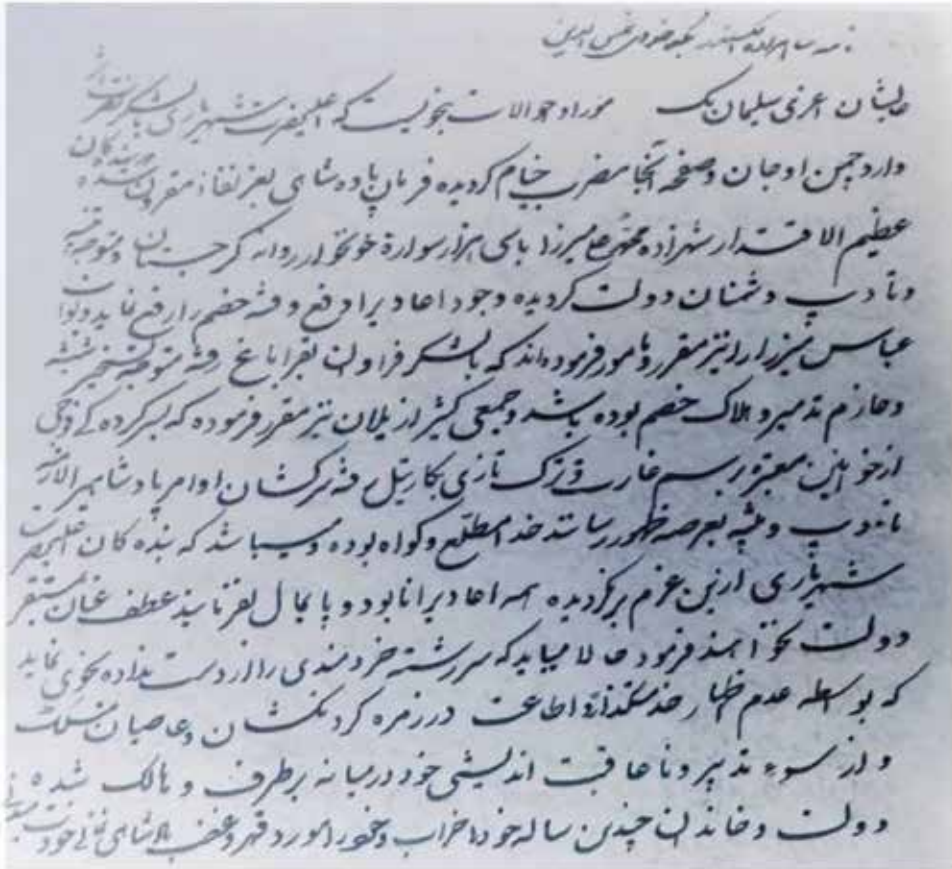 نامه شاهزاده الکسندر
عالیشان اعزی سلیمان بک مورد احوالات بخوبیست که اعلیحضرت شهریاری با لشکر نصرت
وارد چمن اوجان و صفحه آنجا مضرب خیام گردیده فرمان پادشاهی بعز نفاذ مقرون شده
عظیم الاقتدار شهزاده میرزا با سی هزار سواره خونخوار روانه گرجستان و متوجه تنبیه
و تأدیب دشمنان دولت گردیده وجود اعادی را دفع و فتنه خصم را رفع نماید و نواب
عباس میرزا را نیز مقرر و مامور فرموده‌اند که با لشکر فراوان بقراباغ رفته متوجه تسخیر شیشه
و عازم تدمیر و هلاک خصم بوده باشد و جمعی کثیر از یلان نیز مقرر فرموده که بسرکرده‌گی
از خوانین معتبره برسم غارت و ترکتازی بکار تبل رفته سرکشان اوامر پادشاهی را
تأدیب و تنبیه بعرصه ظهور رسانند خدا مطلع و گواه بوده و میباشد که بنده‌کان اعلیحضرت
شهریاری ازین عزم برنگردیده همه اعادی را نابود و پایمال نفرمایند عطف عنان بمستقر
دولت نخواهند فرمود حالا میباید که سررشته خردمندی را از دست نداده نحوی نماید
که بواسطه عدم اظهار خدمتگذاری و اطاعت در زمره گردنکشان و عاصیان منسلک
و از سوء تدبیر و ناعاقبت اندیشی خود در میانه برطرف و هالک شده
دولت و خاندان چندین ساله خود را خراب و خود را مورد قهر و غضب پادشاهی